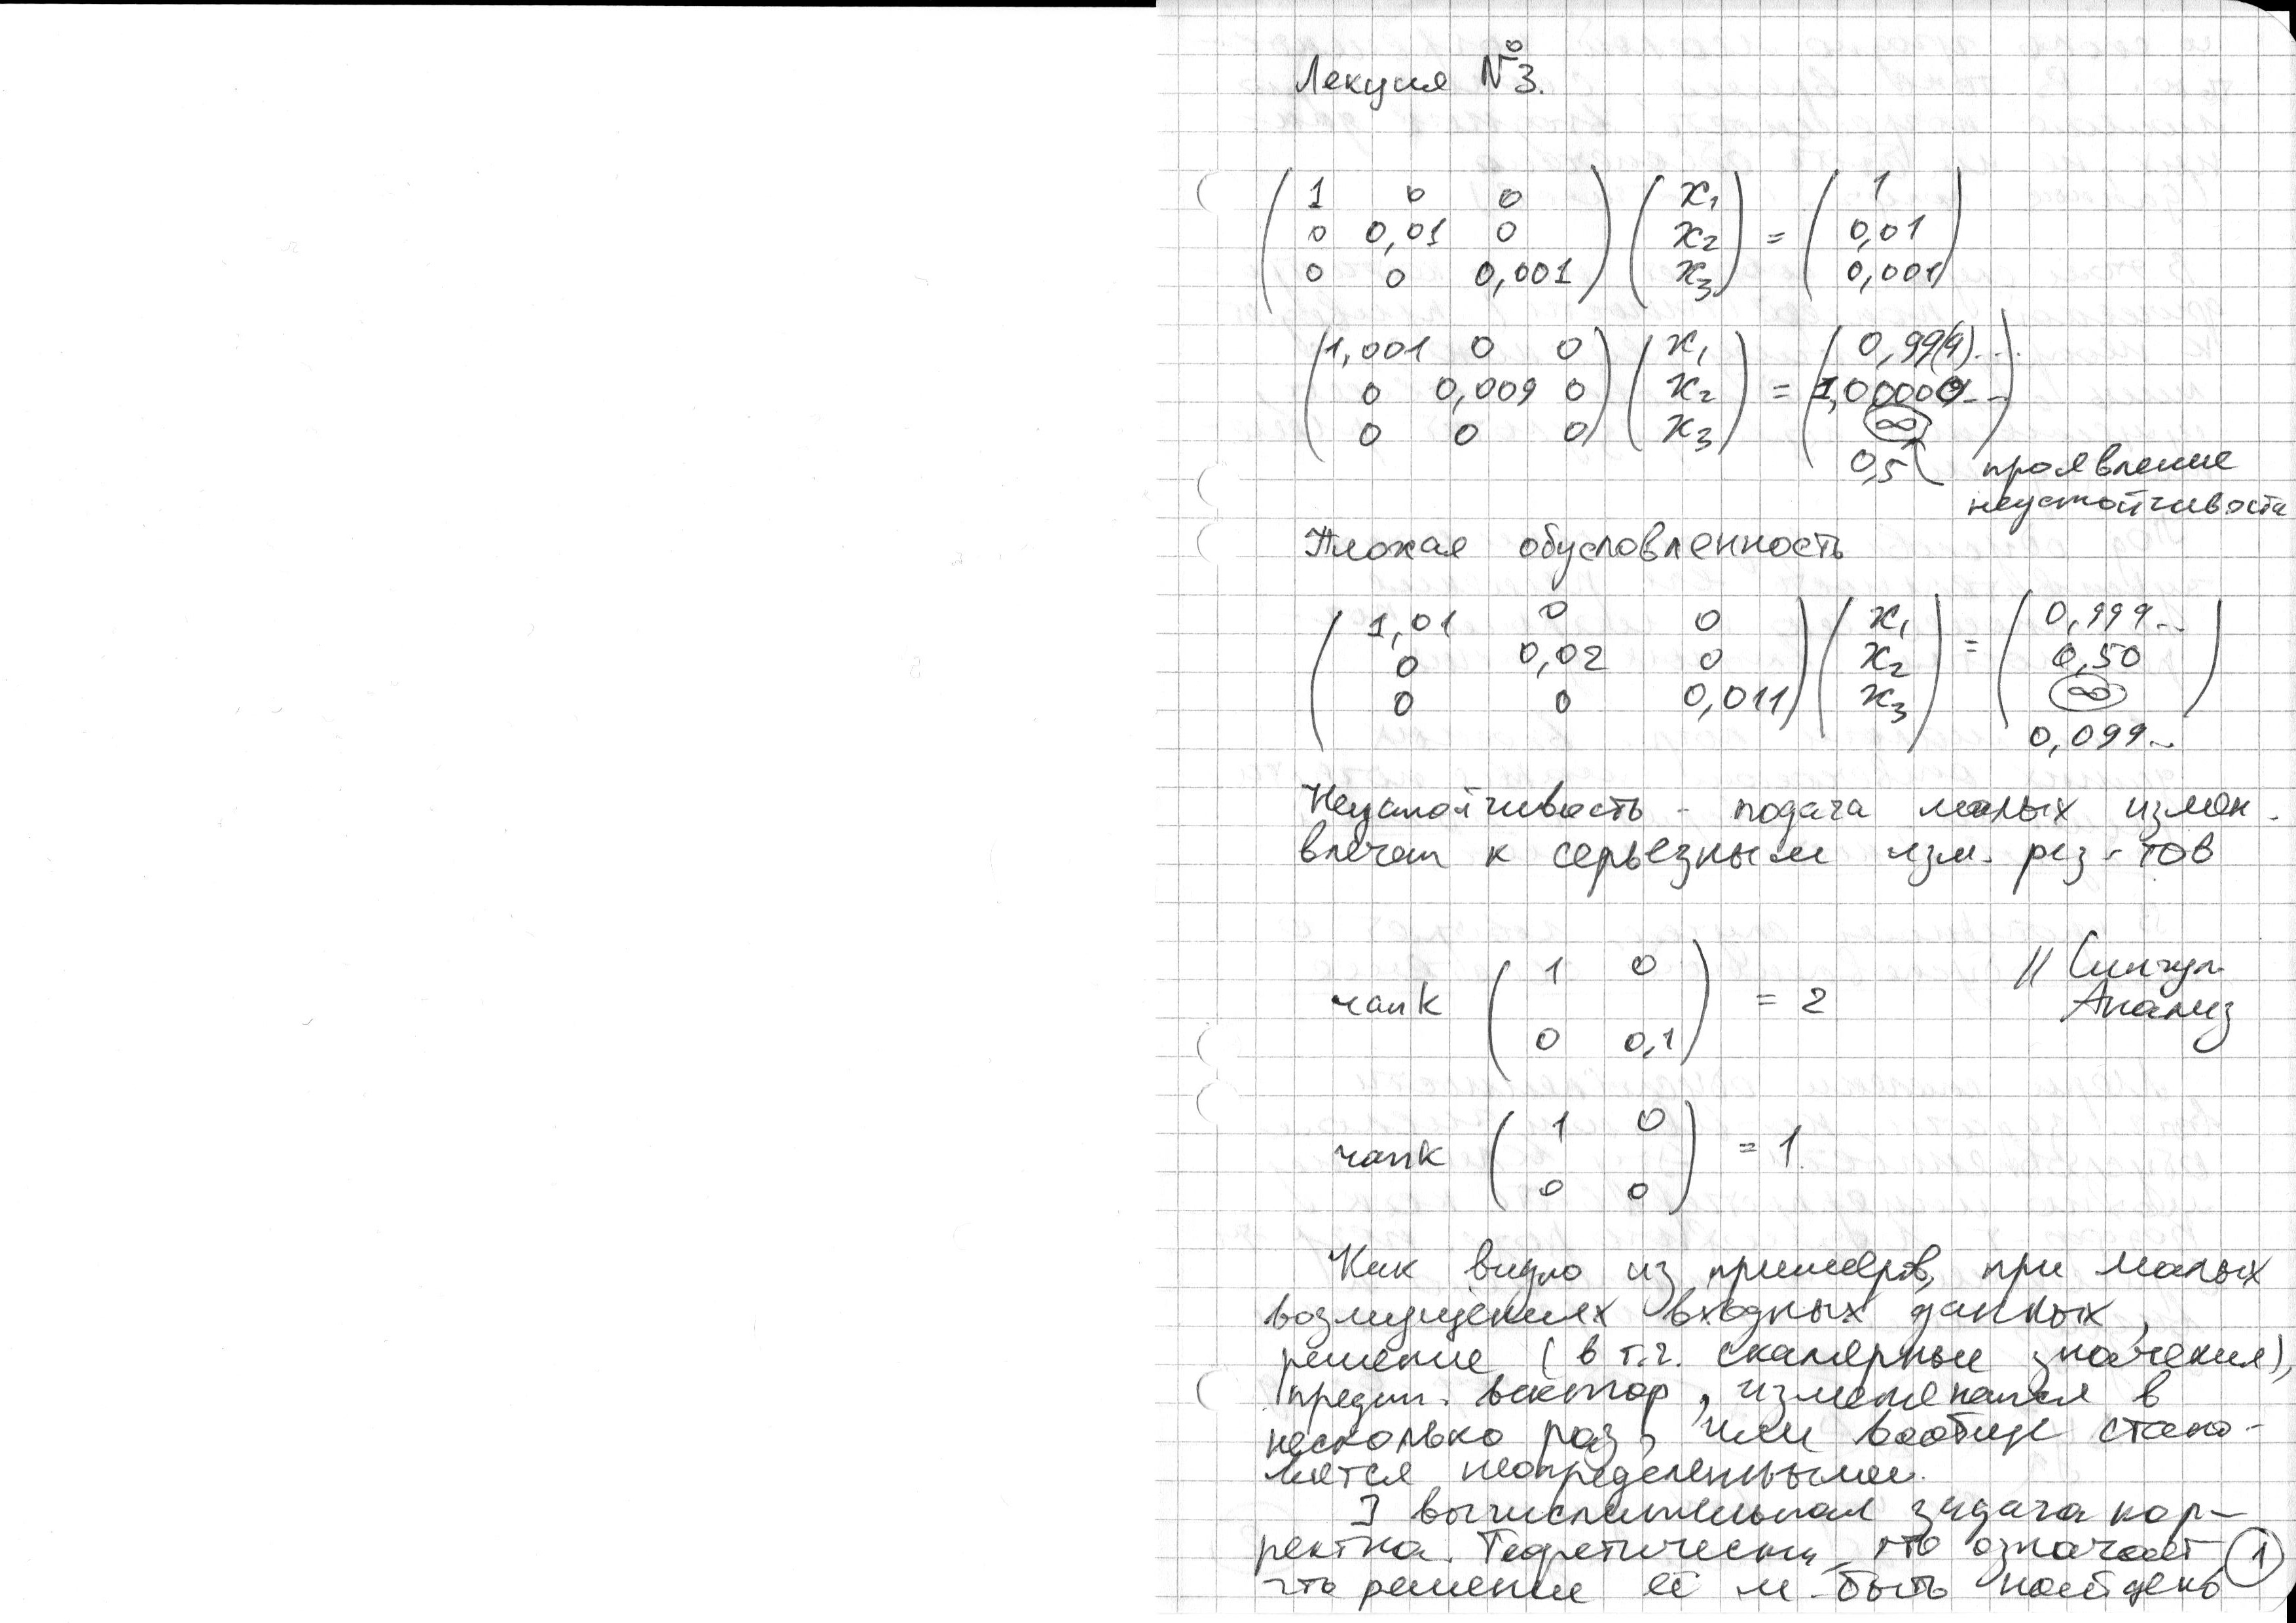 Лекция №3.
( 1 0 0 ) ( x₁ ) ( 1 )
( 0 0,01 0 ) ( x₂ ) = ( 0,01 )
( 0 0 0,001 ) ( x₃ ) ( 0,001 )
( 1,001 0 0 ) ( x₁ ) ( 0,99(9)... )
( 0 0,009 0 ) ( x₂ ) = ( 1,00000... )
( 0 0 0 ) ( x₃ ) ( ∞ )
0,5 проявление
неустойчивости
Плохая обусловленность
( 1,01 0 0 ) ( x₁ ) ( 0,999... )
( 0 0,02 0 ) ( x₂ ) = ( 0,50 )
( 0 0 0,011 ) ( x₃ ) ( ∞ )
0,099...
Неустойчивость - подача малых измен.
влечет к серьезным изм. рез-тов
( 1 0 ) // Сингул.
rank = 2 Анализ
( 0 0,1 )
( 1 0 )
rank = 1.
( 0 0 )
Как видно из примеров, при малых
возмущениях входных данных,
решение (в т.ч. скалярные значения),
вектор, изменяется в
несколько раз, или вообще стано-
вится неопределенными.
∃ вычислительная задача кор-
ректна. Теоретически, это означает
что решение её м. быть найдено
1